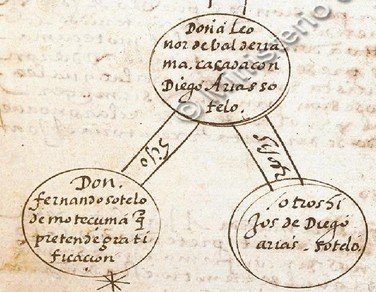 Doña Leo
nor de balderra
ma. casada con
Diego Arias so
telo.
hijo
hijos
Don.
fernando sotelo
de motecuma q̃
pretende grati
ficacion
otros hi
jos de Diego
arias. sotelo.
© Ministerio d